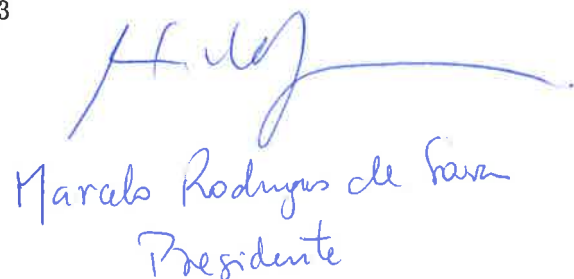 3
Marcelo Rodrigues de
Presidente